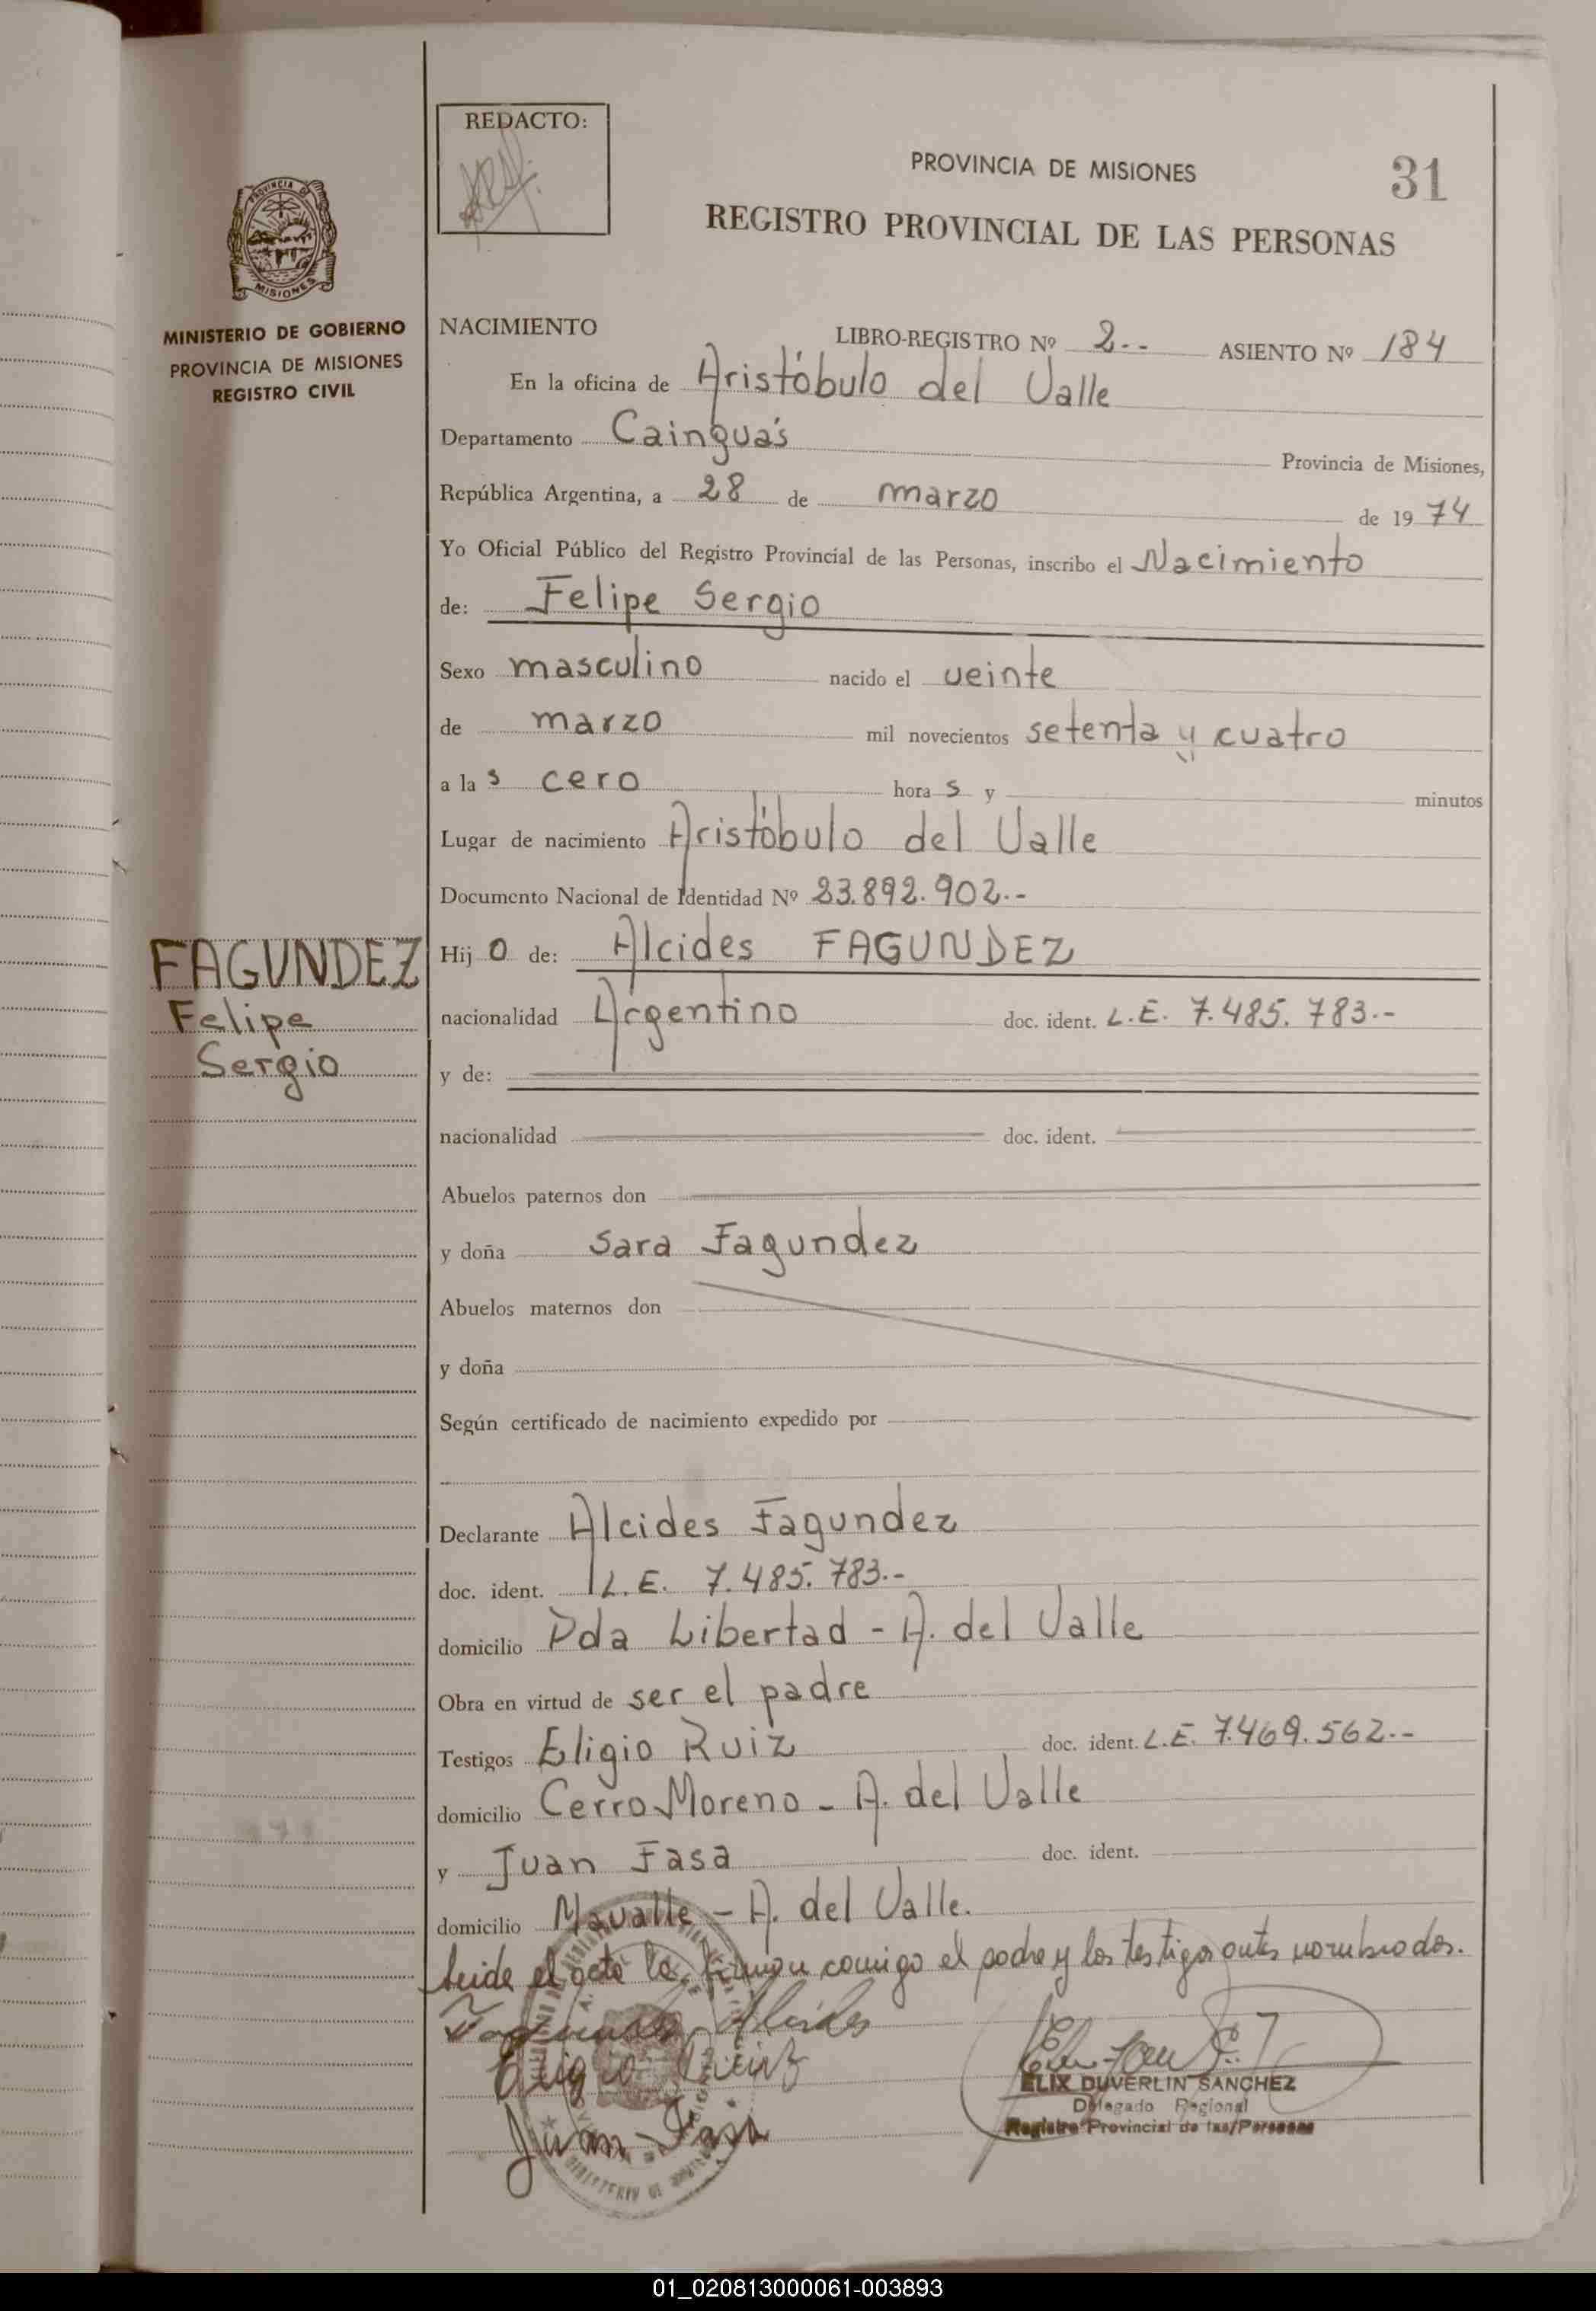 REDACTO:
PROVINCIA DE MISIONES
31
REGISTRO PROVINCIAL DE LAS PERSONAS
PROVINCIA DE
MISIONES
MINISTERIO DE GOBIERNO
PROVINCIA DE MISIONES
REGISTRO CIVIL
NACIMIENTO LIBRO-REGISTRO Nº 2.- ASIENTO Nº 184
En la oficina de Aristóbulo del Valle
Departamento Cainguás Provincia de Misiones,
República Argentina, a 28 de marzo de 1974
Yo Oficial Público del Registro Provincial de las Personas, inscribo el Nacimiento
de: Felipe Sergio
Sexo masculino nacido el veinte
de marzo mil novecientos setenta y cuatro
a las cero horas y minutos
Lugar de nacimiento Aristóbulo del Valle
Documento Nacional de Identidad Nº 23.892.902.-
FAGUNDEZ
Felipe
Sergio
Hijo de: Alcides FAGUNDEZ
nacionalidad Argentino doc. ident. L.E. 7.485.783.-
y de:
nacionalidad doc. ident.
Abuelos paternos don
y doña Sara Fagundez
Abuelos maternos don
y doña
Según certificado de nacimiento expedido por
Declarante Alcides Fagundez
doc. ident. L.E. 7.485.783.-
domicilio Pda Libertad - A. del Valle
Obra en virtud de ser el padre
Testigos Eligio Ruiz doc. ident. L.E. 7.469.562.-
domicilio Cerro Moreno - A. del Valle
y Juan Fasa doc. ident.
domicilio Mavalle - A. del Valle.
Leida el acta la firman comigo el padre y los testigos antes nombrados.
Fagundez Alcides
Eligio Ruiz
Juan Fasa
ELIX DUVERLIN SANCHEZ
Delegado Regional
Registro Provincial de las Personas
01_020813000061-003893